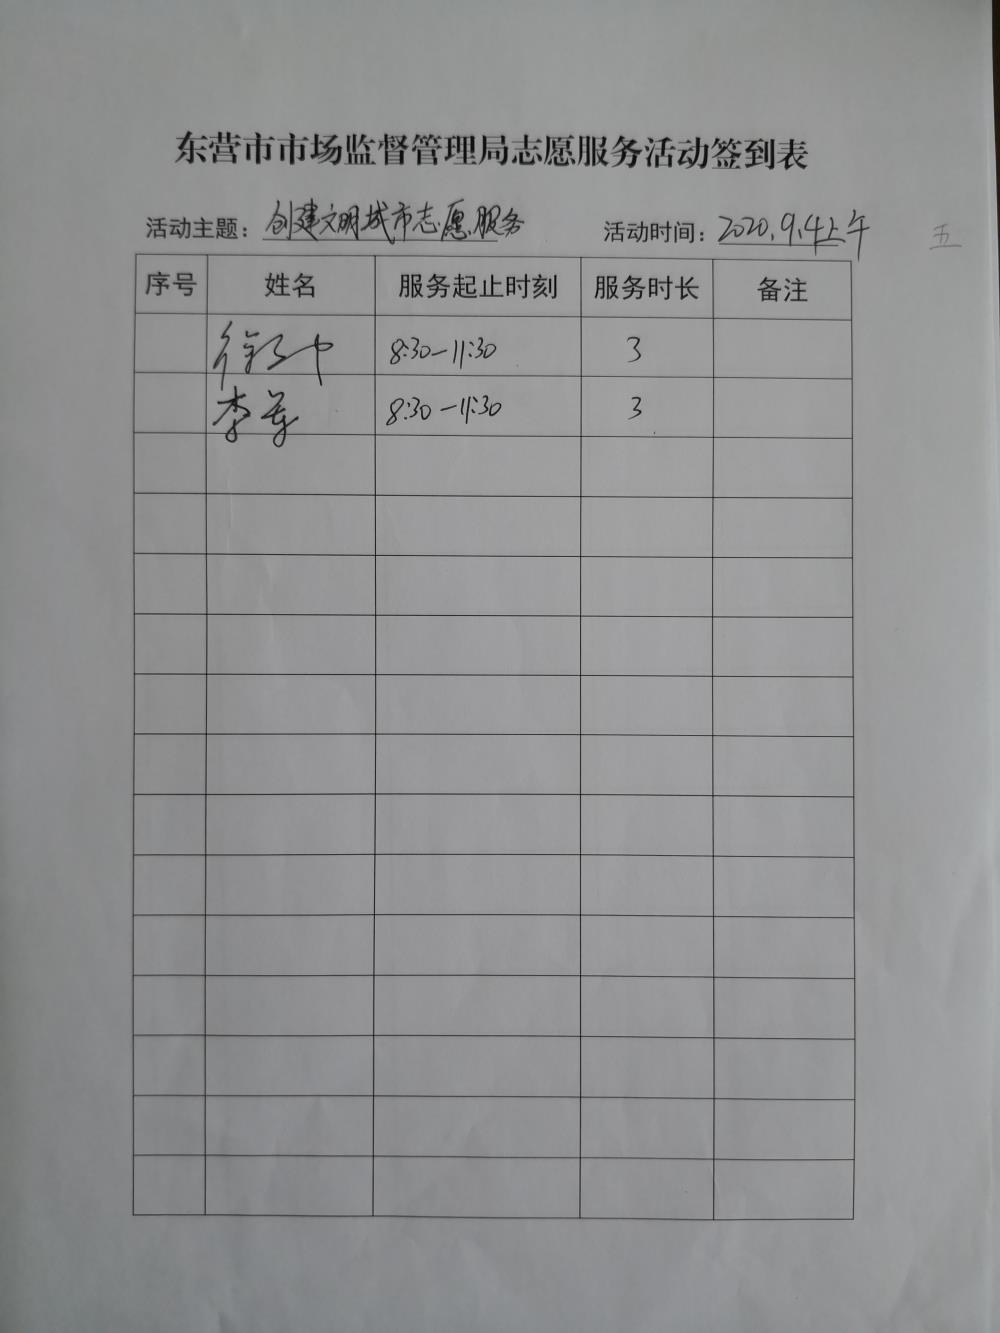 东营市市场监督管理局志愿服务活动签到表
活动主题：创建文明城市志愿服务 活动时间：2020.9.4上午 五
序号 姓名 服务起止时刻 服务时长 备注
徐 8:30-11:30 3
李 8:30-11:30 3